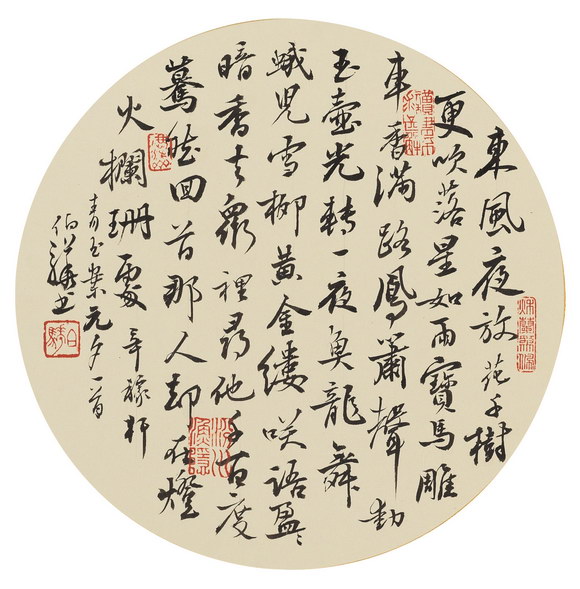 東風夜放花千樹
更吹落星如雨寶馬雕
車香滿路鳳簫聲動
玉壺光轉一夜魚龍舞
蛾兒雪柳黃金縷咲語盈〻
暗香去衆裡尋他千百度
驀然回首那人却在燈
火欄珊處 辛稼軒
青玉案元夕一首
伯